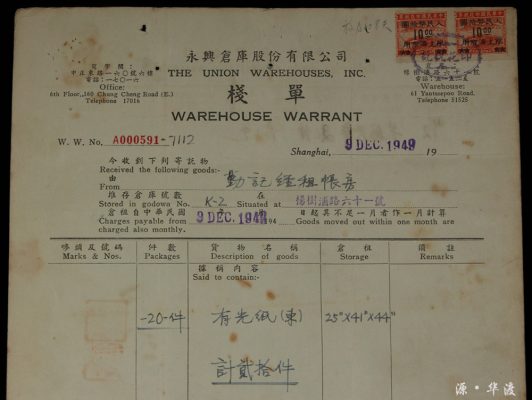 永興倉庫股份有限公司
THE UNION WAREHOUSES, INC.
中正東路一六〇號六樓
電話：一七〇一六
Office:
6th Floor, 160 Chung Cheng Road (E.)
Telephone 17016
楊樹浦路六十一號
Warehouse:
61 Yantsepoo Road.
Telephone 51525
棧單
WAREHOUSE WARRANT
W. W. No. A000591-7112
Shanghai, 9 DEC. 1949 19
今收到下列寄託物
Received the following goods:-
由
From 勤記經租帳房
堆存倉庫號數 在
Stored in godown No. K-2 Situated at 楊樹浦路六十一號
倉租自中華民國 日起算不足一月者作一月計算
Charges payable from 9 DEC. 1949 194 Goods moved out within one month are
charged also monthly.
嘜頭及號碼 件數 貨物名稱 倉租 備註
Marks & Nos. Packages Description of goods Storage Remarks
據稱內容
Said to contain:-
-20-件 有光紙(東) 25"X41"X44"
計貳拾件
10.00 10.00
源·华渡